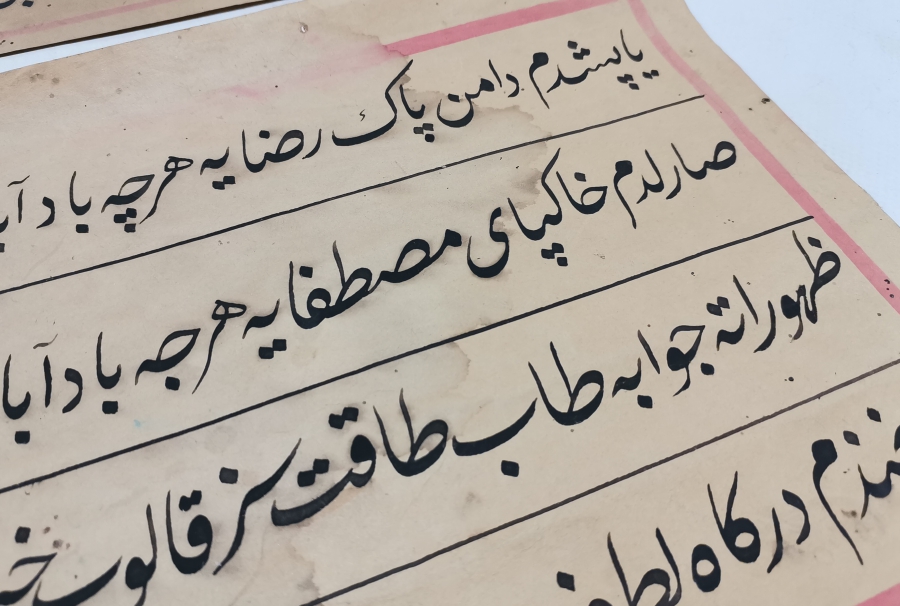 یاپشدم دامن پاک رضایه هرچه باد آبا
صارلدم خاکپای مصطفایه هرچه باد آبا
ظهوراته جوابه طاب طاقت سز قالوب
درکاه